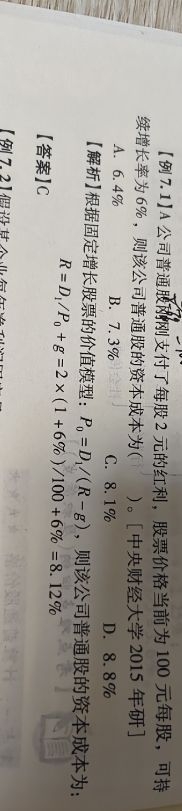 【例7.1】A公司普通股刚刚支付了每股2元的红利，股票价格当前为100元每股，可持
续增长率为6%，则该公司普通股的资本成本为(    )。[中央财经大学2015年研]
A. 6.4%  B. 7.3%  C. 8.1%  D. 8.8%
【解析】根据固定增长股票的价值模型：P₀=D₁/(R-g)，则该公司普通股的资本成本为：
R=D₁/P₀+g=2×(1+6%)/100+6%=8.12%
【答案】C
【例7.2】假设某企业每年净利润